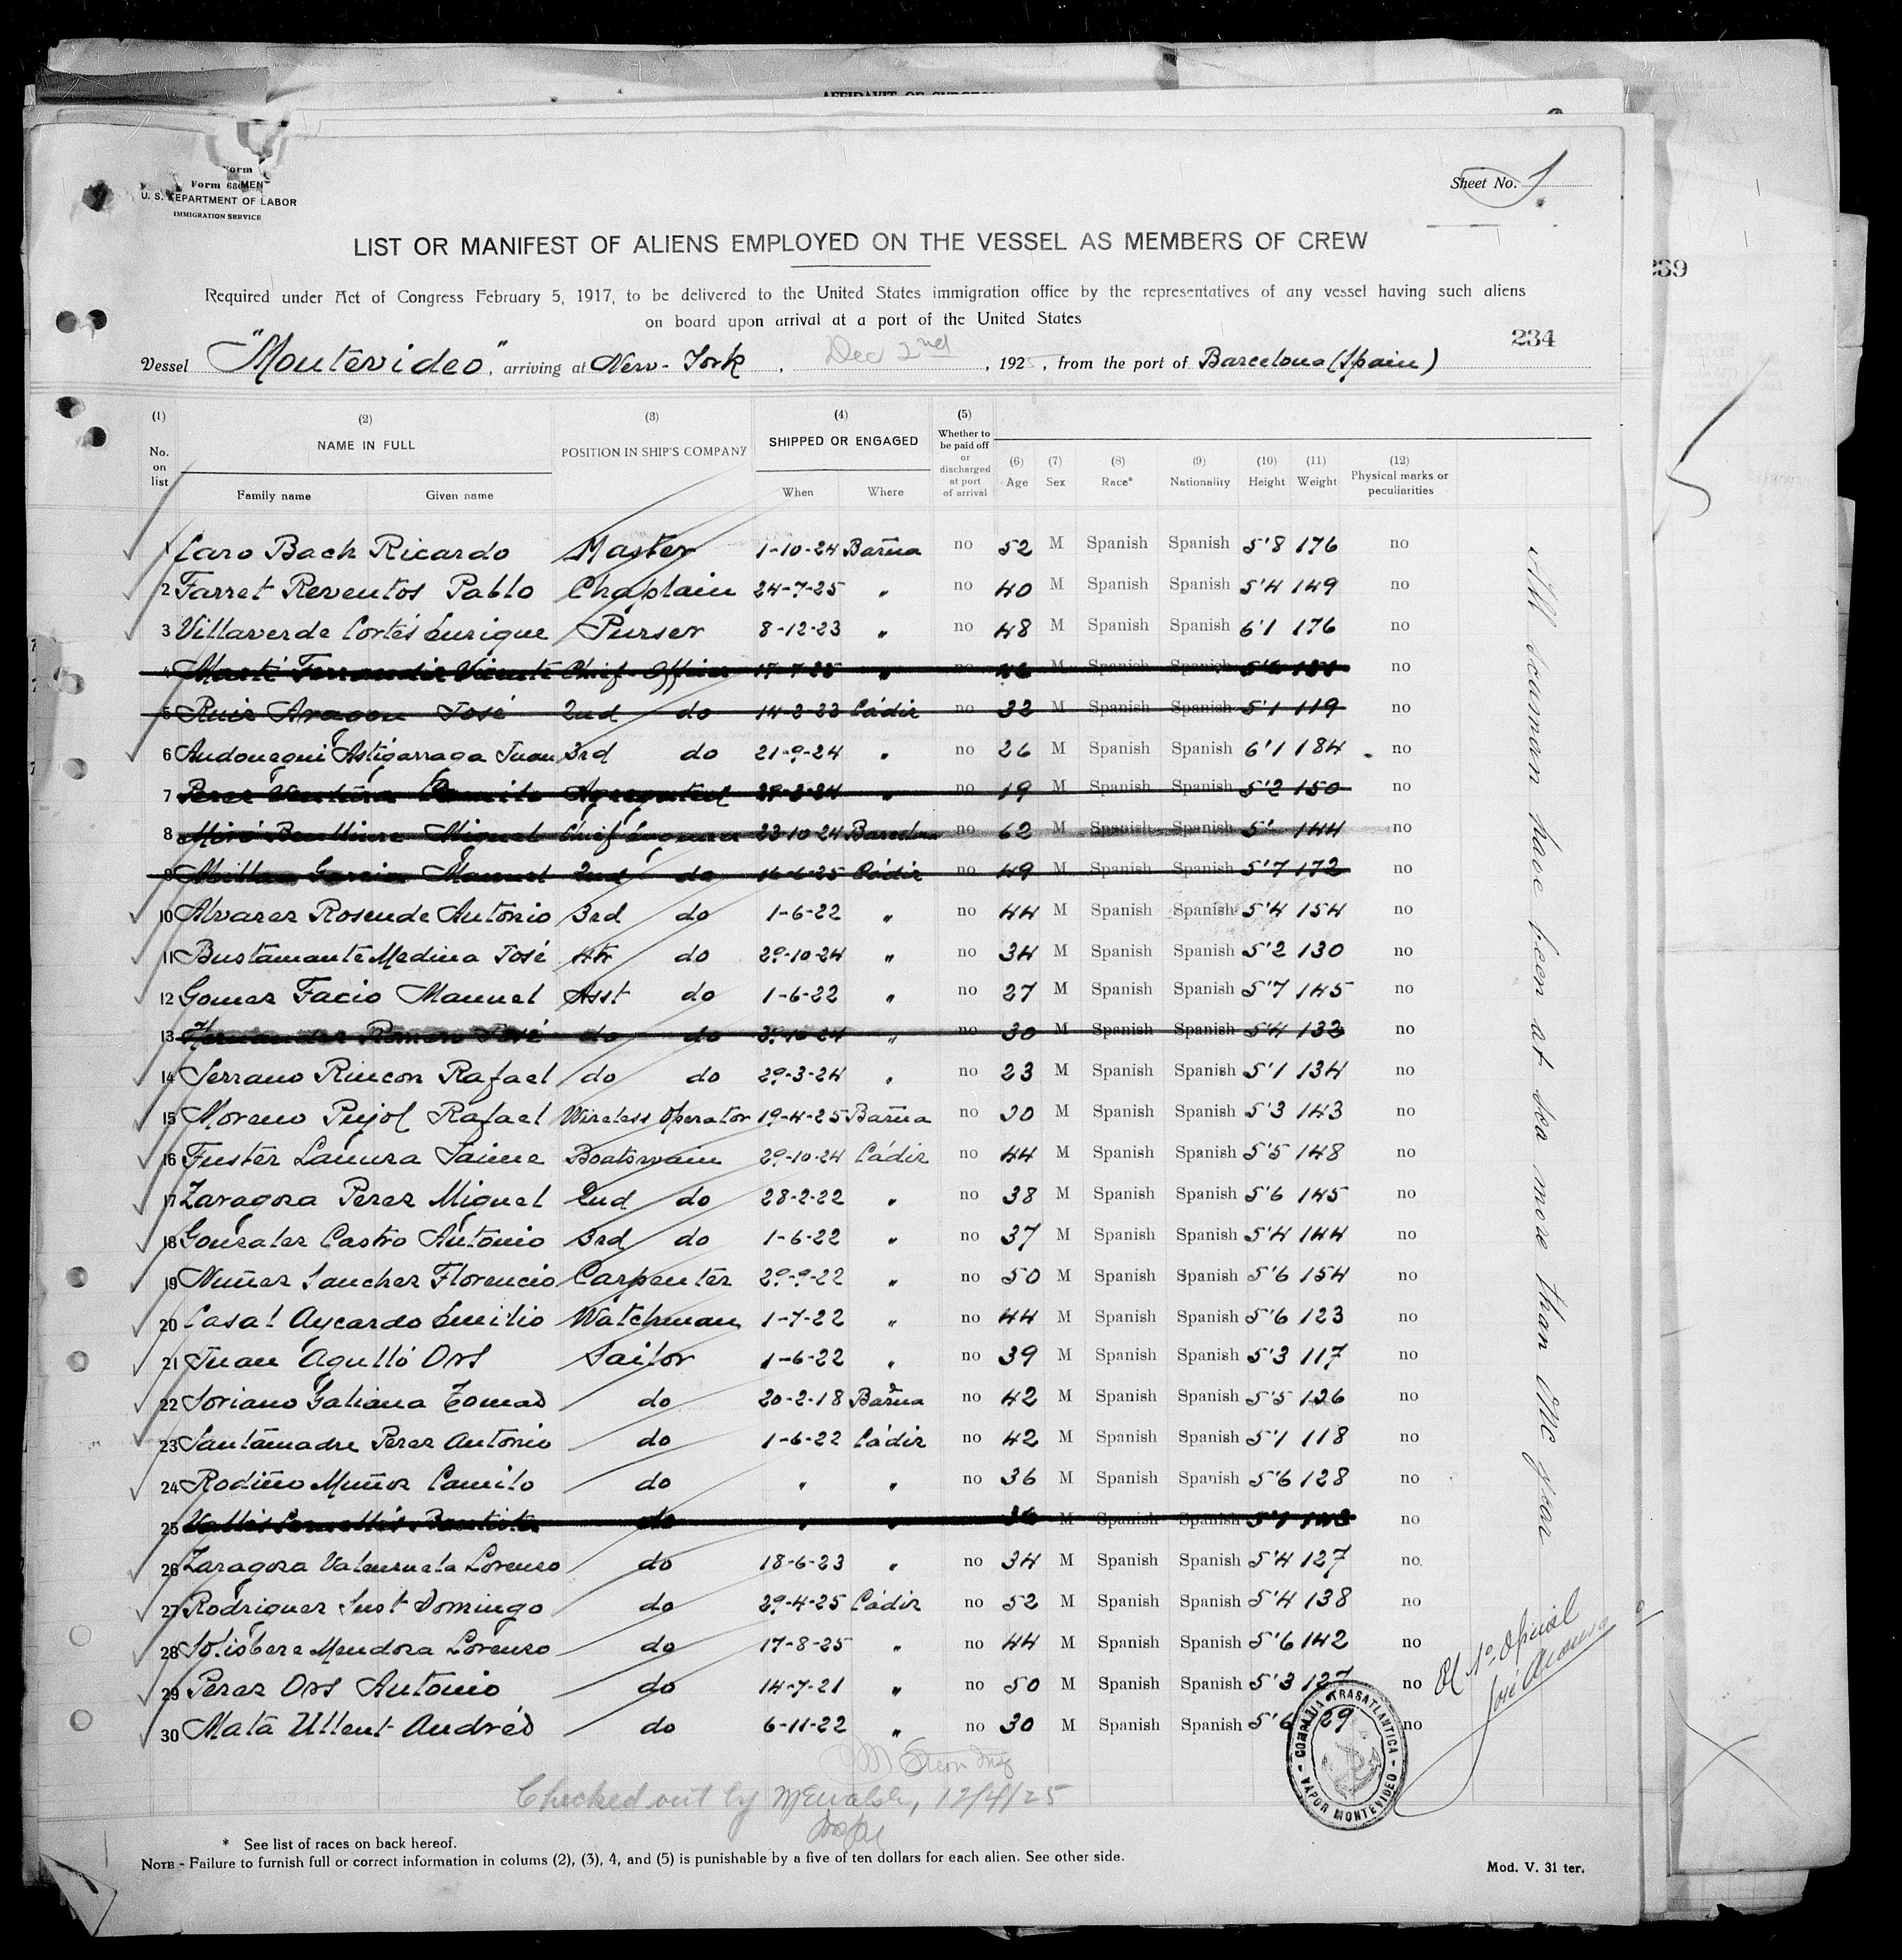 AFFIDAVIT OF SURGEON
Form
Form 680
U. S. DEPARTMENT OF LABOR
IMMIGRATION SERVICE
Sheet No. 1
LIST OR MANIFEST OF ALIENS EMPLOYED ON THE VESSEL AS MEMBERS OF CREW
239
Required under Act of Congress February 5, 1917, to be delivered to the United States immigration office by the representatives of any vessel having such aliens
on board upon arrival at a port of the United States
234
Vessel "Montevideo", arriving at New-York, Dec 2nd, 192 , from the port of Barcelona (Spain)
(1) (2) (3) (4) (5)
No. on list NAME IN FULL POSITION IN SHIP'S COMPANY SHIPPED OR ENGAGED Whether to be paid off or discharged at port of arrival
(6) (7) (8) (9) (10) (11) (12)
Age Sex Race* Nationality Height Weight Physical marks or peculiarities
Family name Given name When Where
1 Caro Bach Ricardo Master 1-10-24 Barña no 52 M Spanish Spanish 5'8 176 no
2 Farret Reventos Pablo Chaplain 24-7-25 " no 40 M Spanish Spanish 5'4 149 no
3 Villaverde Cortés Enrique Purser 8-12-23 " no 48 M Spanish Spanish 6'1 176 no
4 Marti Ferrandis Vicente Chief Officer 17-7-25 " no M Spanish Spanish no
5 Ruiz Aragon José 2nd do 14-2-23 Cádiz no 32 M Spanish Spanish 5'1 119 no
6 Andonegui Astigarraga Juan 3rd do 21-9-24 " no 26 M Spanish Spanish 6'1 184 no
7 Perez Ventura Agregated 29-3-24 " no 19 M Spanish Spanish 5'2 150 no
8 Miró Miguel Chief Engineer 23-10-24 Barcelona no 62 M Spanish Spanish 5' 144 no
9 Millan Garcia Manuel 2nd do 16-6-25 Cádiz no 49 M Spanish Spanish 5'7 172 no
10 Alvarez Rosende Antonio 3rd do 1-6-22 " no 44 M Spanish Spanish 5'4 154 no
11 Bustamante Medina José 4th do 29-10-24 " no 34 M Spanish Spanish 5'2 130 no
12 Gomez Facio Manuel Asst do 1-6-22 " no 27 M Spanish Spanish 5'7 145 no
13 Hernandez Romero José do do 29-10-24 " no 30 M Spanish Spanish 5'4 132 no
14 Serrano Rincon Rafael do do 29-3-24 " no 23 M Spanish Spanish 5'1 134 no
15 Moreno Pujol Rafael Wireless Operator 19-4-25 Barña no 30 M Spanish Spanish 5'3 143 no
16 Fuster Lanuza Jaime Boatswain 29-10-24 Cádiz no 44 M Spanish Spanish 5'5 148 no
17 Zaragoza Perez Miguel 2nd do 28-2-22 " no 38 M Spanish Spanish 5'6 145 no
18 Gonzalez Castro Antonio 3rd do 1-6-22 " no 37 M Spanish Spanish 5'4 144 no
19 Nuñez Sanchez Florencio Carpenter 29-9-22 " no 50 M Spanish Spanish 5'6 154 no
20 Casal Aycardo Emilio Watchman 1-7-22 " no 44 M Spanish Spanish 5'6 123 no
21 Juan Agulló Ors Sailor 1-6-22 " no 39 M Spanish Spanish 5'3 117 no
22 Soriano Galiana Tomas do 20-2-18 Barña no 42 M Spanish Spanish 5'5 126 no
23 Santamadre Perez Antonio do 1-6-22 Cádiz no 42 M Spanish Spanish 5'1 118 no
24 Rodiño Muñoz Camilo do " " no 36 M Spanish Spanish 5'6 128 no
25 Bautista do " " 36 M Spanish Spanish 5'7 143 no
26 Zaragoza Valenzuela Lorenzo do 18-6-23 " no 34 M Spanish Spanish 5'4 127 no
27 Rodriguez Sust Domingo do 29-4-25 Cádiz no 52 M Spanish Spanish 5'4 138 no
28 Solisbere Mendoza Lorenzo do 17-8-25 " no 44 M Spanish Spanish 5'6 142 no
29 Perez Ors Antonio do 14-7-21 " no 50 M Spanish Spanish 5'3 127 no
30 Mata Ullent Andrés do 6-11-22 " no 30 M Spanish Spanish 5'6 129 no
All seaman have been at sea more than one year
El 1º Oficial
José
COMPAÑIA TRASATLANTICA - VAPOR MONTEVIDEO -
Checked out by McWalsh, 12/4/25
* See list of races on back hereof.
NOTE - Failure to furnish full or correct information in colums (2), (3), 4, and (5) is punishable by a five of ten dollars for each alien. See other side.
Mod. V. 31 ter.